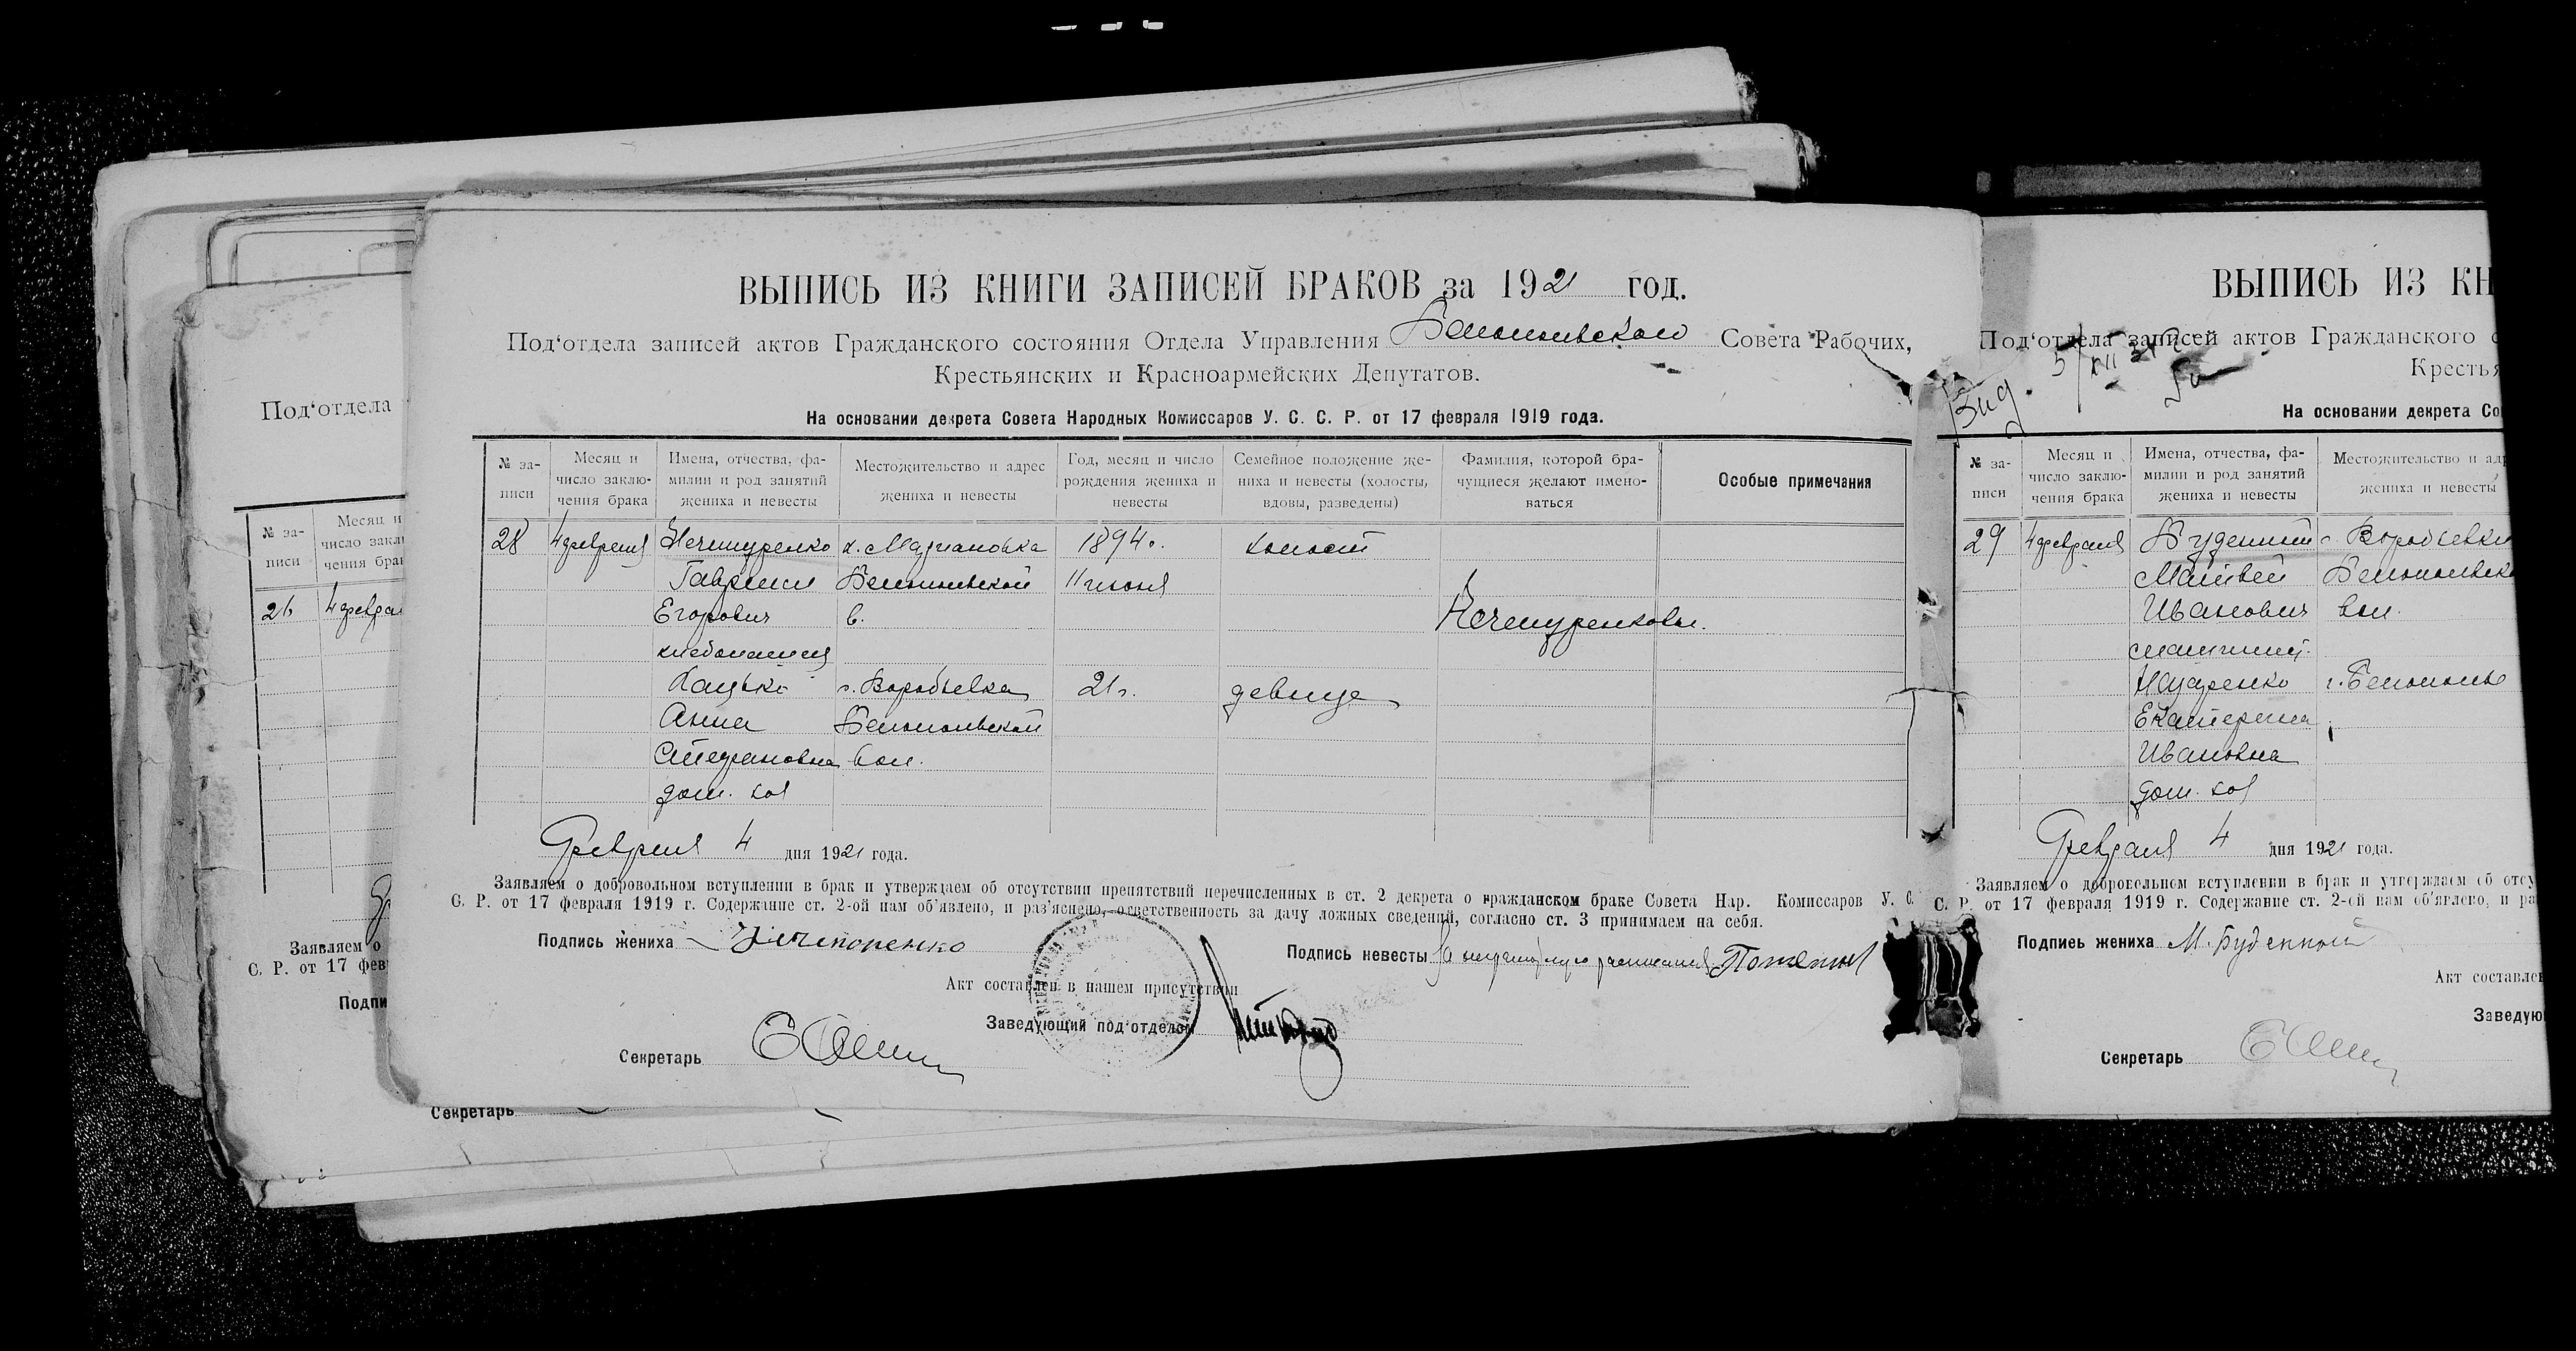 ВЫПИСЬ ИЗ КНИГИ ЗАПИСЕЙ БРАКОВ за 1921 год.
Под‘отдела записей актов Гражданского состояния Отдела Управления Белопольского Совета Рабочих,
Крестьянских и Красноармейских Депутатов.
На основании декрета Совета Народных Комиссаров У. С. С. Р. от 17 февраля 1919 года.
№ за-писи
Месяц и число заклю-чения брака
Имена, отчества, фа-милии и род занятий жениха и невесты
Местожительство и адрес жениха и невесты
Год, месяц и число рождения жениха и невесты
Семейное положение же-ниха и невесты (холосты, вдовы, разведены)
Фамилия, которой бра-чущиеся желают имено-ваться
Особые примечания
28 4 февраля Нечипуренко х. 1894 г. холост
Гавриил Белопольской 11 июня
Егорович в. Нечипуренковы.
хлебопашец
Кацько с. Воробьевка 21 г. девица
Анна Белопольской
Стефановна вол.
дом. хоз
Февраля 4 дня 1921 года.
Заявляем о добровольном вступлении в брак и утверждаем об отсутствии препятствий перечисленных в ст. 2 декрета о гражданском браке Совета Нар. Комиссаров У. С.
С. Р. от 17 февраля 1919 г. Содержание ст. 2-ой нам об‘явлено, и раз‘яснено, ответственность за дачу ложных сведений, согласно ст. 3 принимаем на себя.
Подпись жениха
Подпись невесты За неграмотную расписался
Акт составлен в нашем присутствии
Заведующий под‘отделом
Секретарь
ВЫПИСЬ ИЗ КН
Под‘отдела записей актов Гражданского с
Крестья
На основании декрета Со
№ за-писи
Месяц и число заклю-чения брака
Имена, отчества, фа-милии и род занятий жениха и невесты
Местожительство и адр
жениха и невесты
29 4 февраля Буденный с. Воробьевки
Матвей Белопольско
Иванович вол.
Назаренко г. Белополье
Екатерина
Ивановна
дом. хоз
Февраля 4 дня 1921 года.
Заявляем о добровольном вступлении в брак и утверждаем об отсу
С. Р. от 17 февраля 1919 г. Содержание ст. 2-ой нам об‘явлено, и ра
Подпись жениха М. Буденной
Акт составлен
Заведую
Секретарь
Под‘отдела
№ за-писи
Месяц и
число заклю
чения брак
26 4 феврал
Заявляем о
С. Р. от 17 фев
Подпи
Секретарь